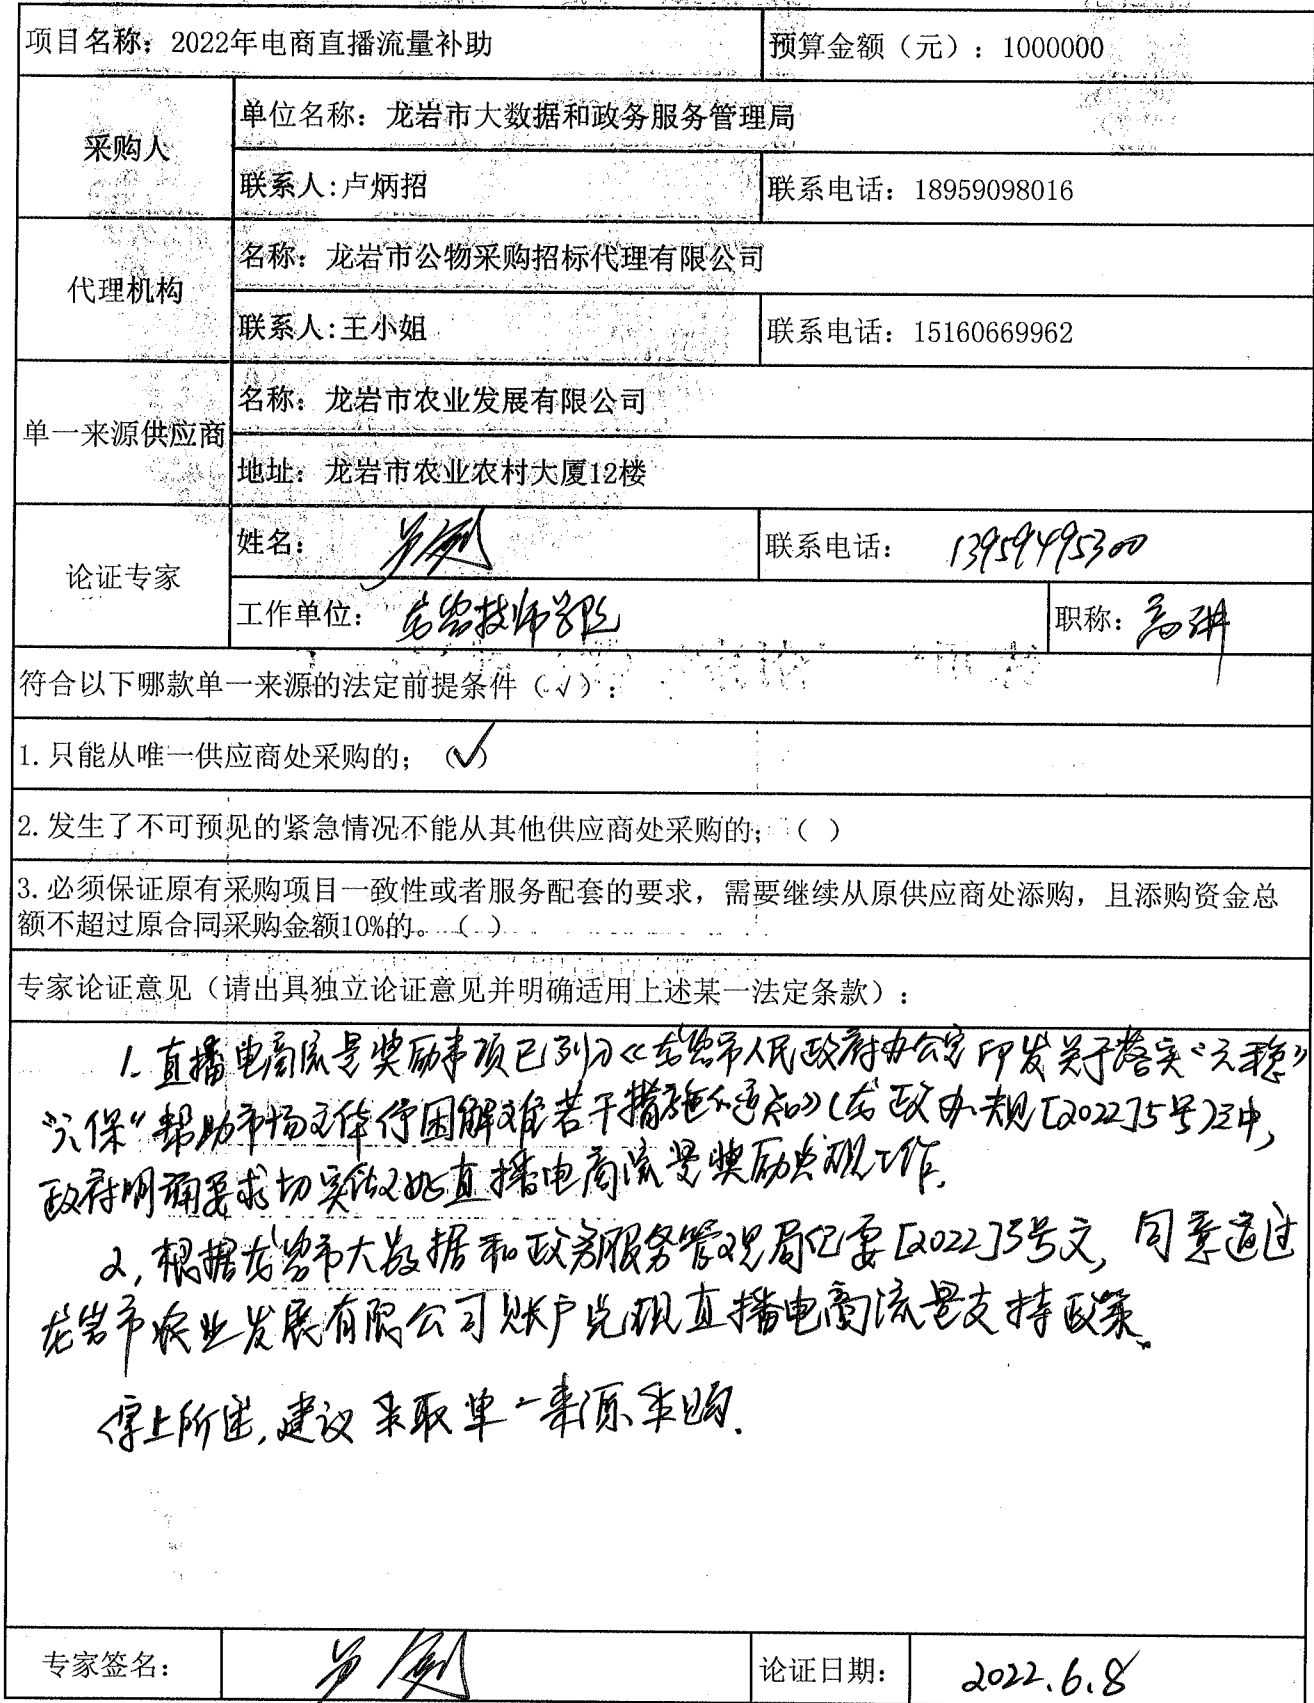 项目名称：2022年电商直播流量补助
预算金额（元）：1000000
采购人
单位名称：龙岩市大数据和政务服务管理局
联系人:卢炳招
联系电话：18959098016
代理机构
名称：龙岩市公物采购招标代理有限公司
联系人:王小姐
联系电话：15160669962
单一来源供应商
名称：龙岩市农业发展有限公司
地址：龙岩市农业农村大厦12楼
论证专家
姓名：
联系电话：13959495300
工作单位：龙岩技师学院
职称：高讲
符合以下哪款单一来源的法定前提条件（√）：
1.只能从唯一供应商处采购的；（✓）
2.发生了不可预见的紧急情况不能从其他供应商处采购的；（ ）
3.必须保证原有采购项目一致性或者服务配套的要求，需要继续从原供应商处添购，且添购资金总
额不超过原合同采购金额10%的。（ ）
专家论证意见（请出具独立论证意见并明确适用上述某一法定条款）：
1. 直播电商流量奖励事项已列入《龙岩市人民政府办公室印发关于落实“六稳”
“六保”帮助市场主体纾困解难若干措施的通知》(龙政办规[2022]5号)文中,
政府明确要求切实做好直播电商流量奖励兑现工作.
2, 根据龙岩市大数据和政务服务管理局纪要[2022]5号文, 同意通过
龙岩市农业发展有限公司账户兑现直播电商流量支持政策。
综上所述, 建议采取单一来源采购.
专家签名：
论证日期：2022.6.8